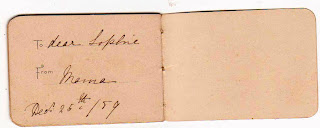 To dear Sophie
From
Mama
Dec 25th / 59